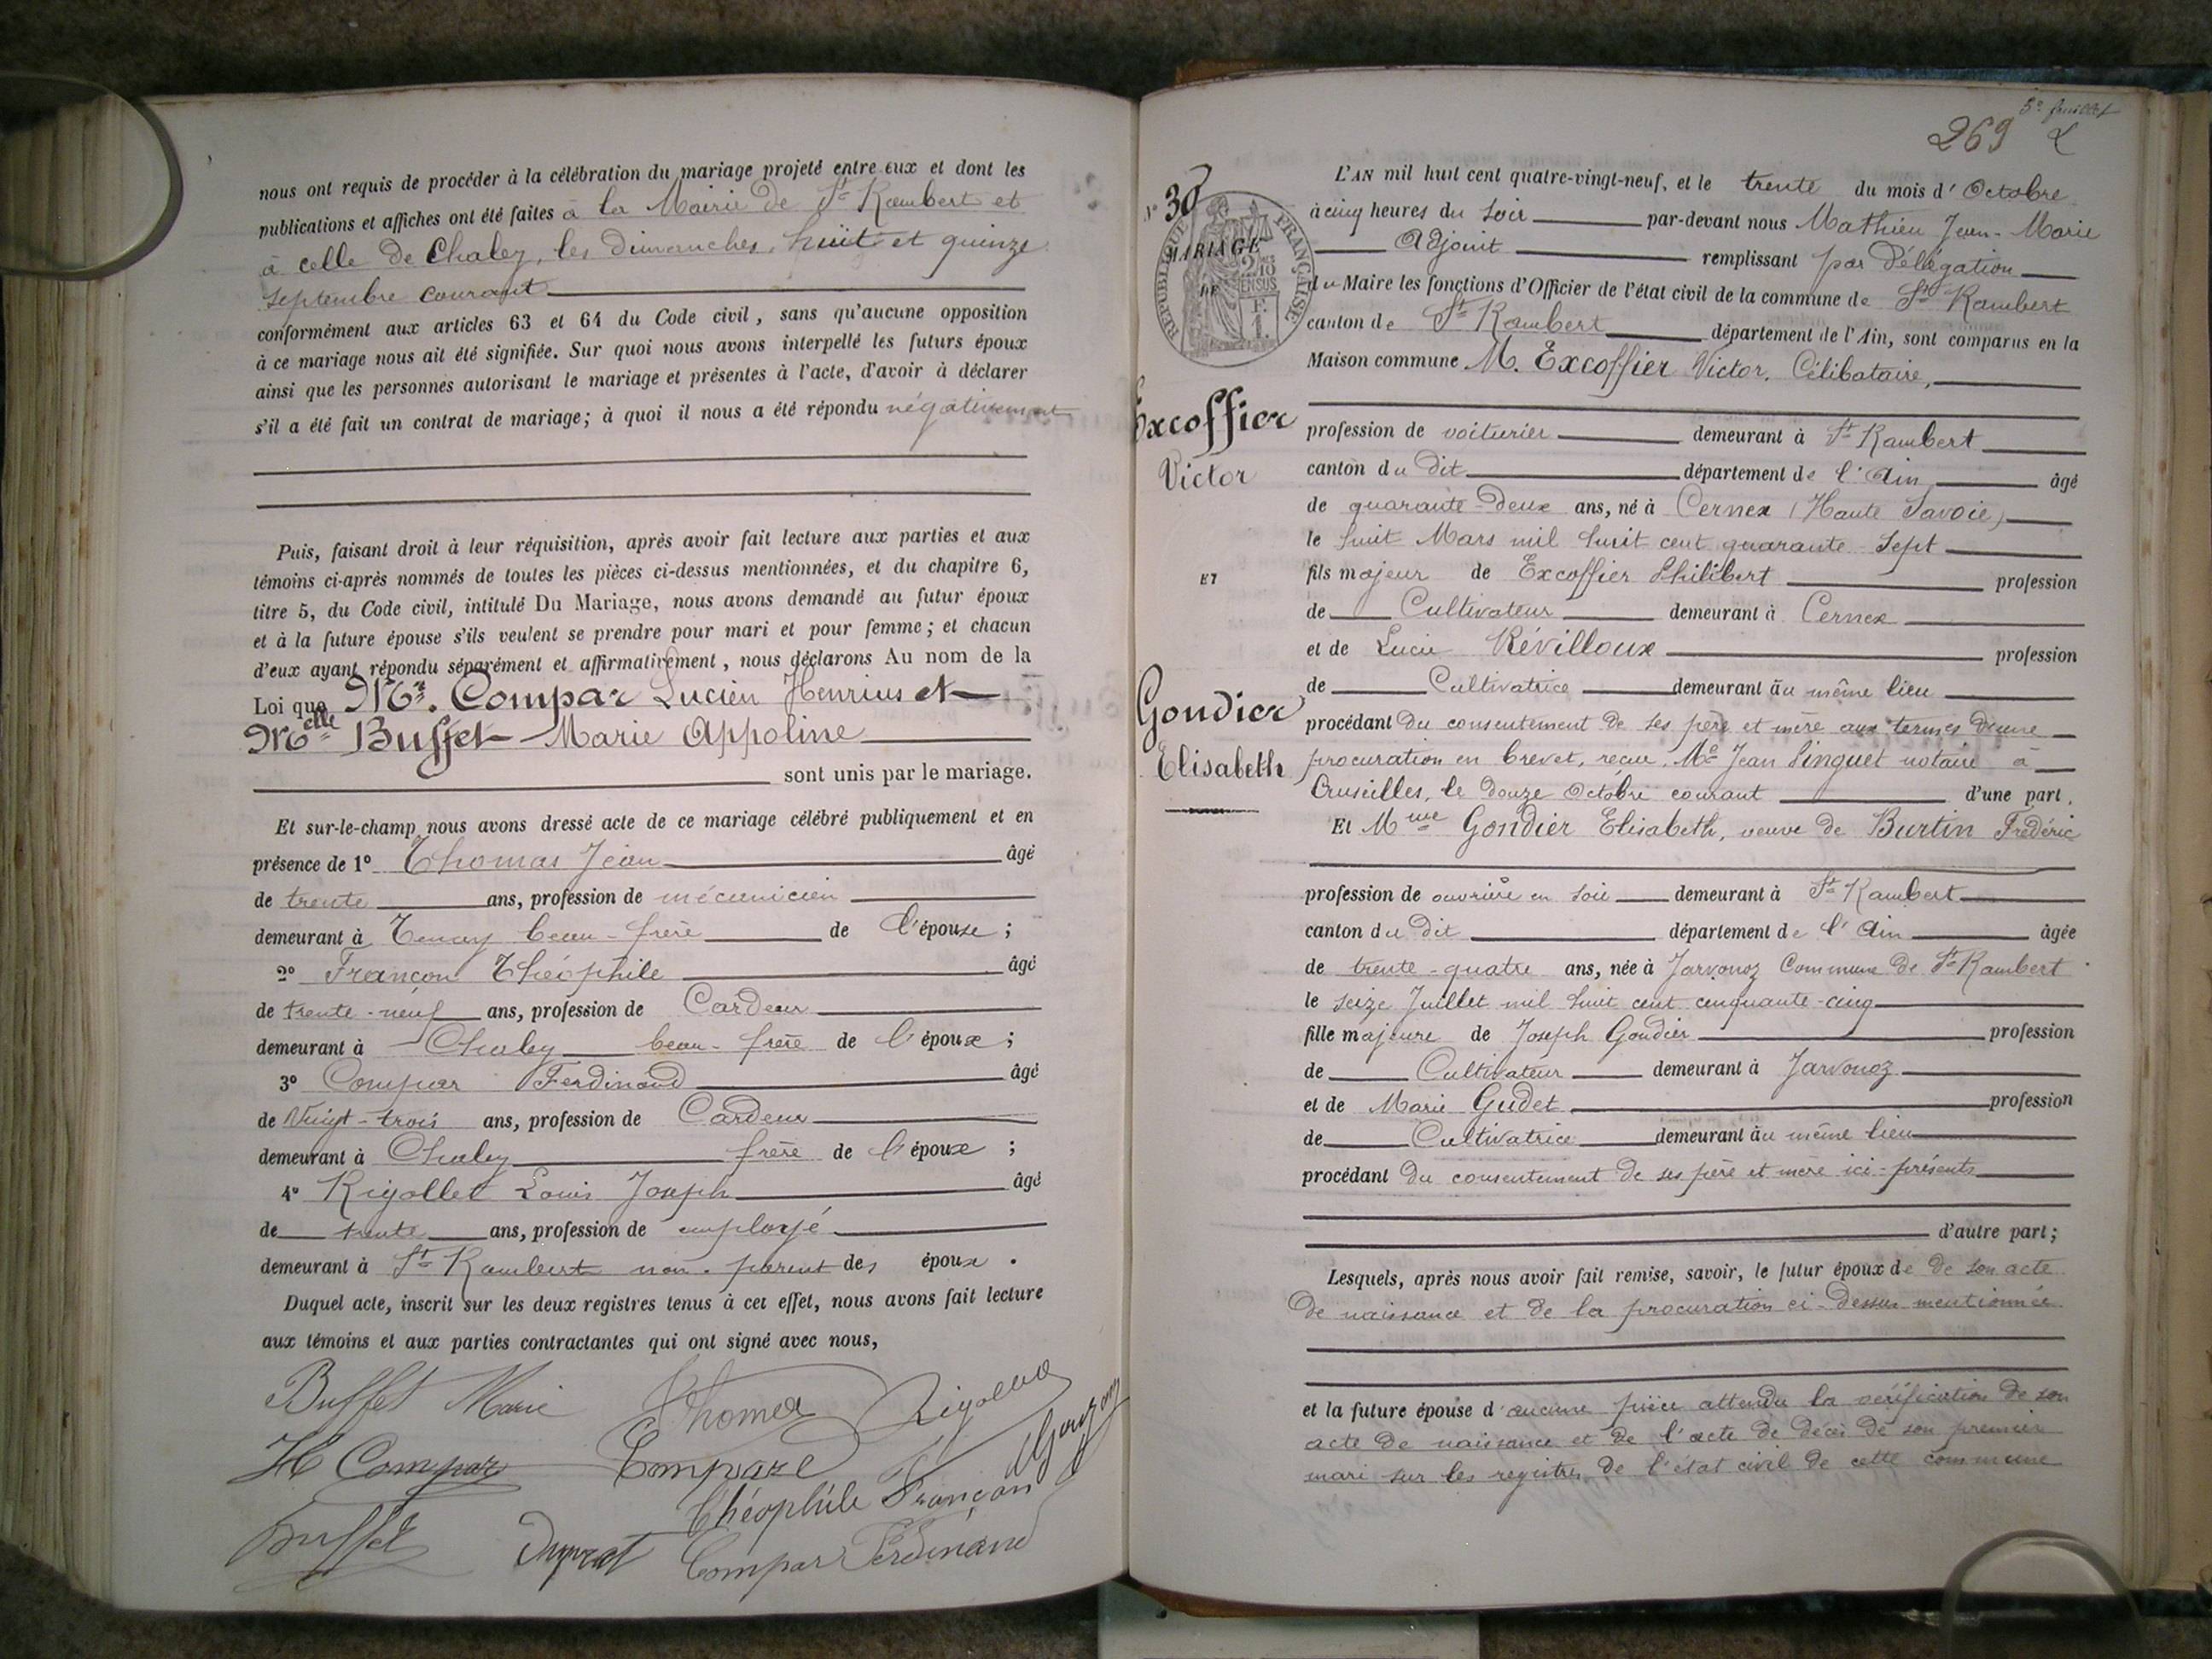 nous ont requis de procéder à la célébration du mariage projeté entre eux et dont les
publications et affiches ont été faites à la Mairie de St Rambert et
à celle de Chaley, les Dimanches, huit et quinze
septembre courant
conformément aux articles 63 et 64 du Code civil, sans qu'aucune opposition
à ce mariage nous ait été signifiée. Sur quoi nous avons interpellé les futurs époux
ainsi que les personnes autorisant le mariage et présentes à l'acte, d'avoir à déclarer
s'il a été fait un contrat de mariage; à quoi il nous a été répondu négativement
Puis, faisant droit à leur réquisition, après avoir fait lecture aux parties et aux
témoins ci-après nommés de toutes les pièces ci-dessus mentionnées, et du chapitre 6,
titre 5, du Code civil, intitulé Du Mariage, nous avons demandé au futur époux
et à la future épouse s'ils veulent se prendre pour mari et pour femme; et chacun
d'eux ayant répondu séparément et affirmativement, nous déclarons Au nom de la
Loi que Mr. Compar Lucien Henrius et
Melle Buffet Marie Appoline
sont unis par le mariage.
Et sur-le-champ nous avons dressé acte de ce mariage célébré publiquement et en
présence de 1° Thomas Jean âgé
de trente ans, profession de mécanicien
demeurant à Tenay beau-frère de l'épouse;
2° Françon Théophile âgé
de trente-neuf ans, profession de Cardeur
demeurant à Chaley beau-frère de l'époux;
3° Compar Ferdinand âgé
de Vingt-trois ans, profession de Cardeur
demeurant à Chaley frère de l'époux;
4° Rigollet Louis Joseph âgé
de trente ans, profession de employé
demeurant à St Rambert non-parent des époux.
Duquel acte, inscrit sur les deux registres tenus à cet effet, nous avons fait lecture
aux témoins et aux parties contractantes qui ont signé avec nous,
Buffet Marie Thomas
H Compar Compare
Théophile Françon
Buffet Compar Ferdinand
5e feuillet
269
N° 30
MARIAGE
DE
RÉPUBLIQUE FRANÇAISE
2/10 EN SUS
Excoffier
Victor
ET
Gondier
Elisabeth
L'AN mil huit cent quatre-vingt-neuf, et le trente du mois d'Octobre
à cinq heures du soir par-devant nous Mathieu Jean-Marie
Adjoint remplissant par Délégation
du Maire les fonctions d'Officier de l'état civil de la commune de St Rambert
canton de St Rambert département de l'Ain, sont comparus en la
Maison commune M. Excoffier Victor. Célibataire,
profession de voiturier demeurant à St Rambert
canton du dit département de l'Ain âgé
de quarante-deux ans, né à Cernex (Haute Savoie)
le huit Mars mil huit cent quarante sept
fils majeur de Excoffier Philibert profession
de Cultivateur demeurant à Cernex
et de Lucie Révilloux profession
de Cultivatrice demeurant au même lieu
procédant du consentement de ses père et mère aux termes d'une
procuration en brevet, reçue Me Jean Pinguet notaire à
Cruseilles, le douze Octobre courant d'une part.
Et Mme Gondier Elisabeth, veuve de Burtin Frédéric
profession de ouvrière en soie demeurant à St Rambert
canton du dit département de l'Ain âgée
de trente-quatre ans, née à Jarvonoz Commune de St Rambert
le seize Juillet mil huit cent cinquante-cinq
fille majeure de Joseph Gondier profession
de Cultivateur demeurant à Jarvonoz
et de Marie Gudet profession
de Cultivatrice demeurant au même lieu
procédant du consentement de ses père et mère ici-présents
d'autre part;
Lesquels, après nous avoir fait remise, savoir, le futur époux de de son acte
de naissance et de la procuration ci-dessus mentionnée
et la future épouse d'aucune pièce attendu la vérification de son
acte de naissance et de l'acte de décès de son premier
mari sur les registres de l'état civil de cette commune